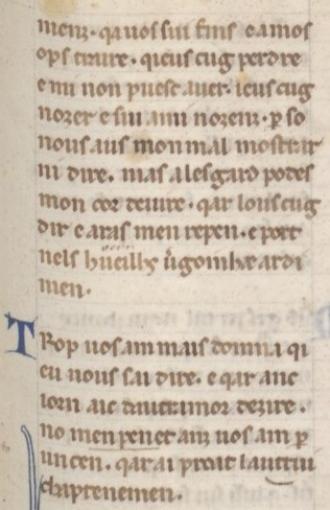 menz. qauos sui fins eamos
ops traire. qieus cug perdre
e mi non puesc auer. ieus cug
nozer e sui ami nozenz. p so
nous aus mon mal mostrar
ni dire. mas a lesgard podes
mon cor deuire. qar lous cug
dir e aras men repen. e port
nels hueills ardi
men.
Trop uos am mais domna qi
eu nous sai dire. e qar anc
iorn aic dautramor dezire.
no men penet anz uos am p
un cen. qar ai proat lautrui
chaptenemen.